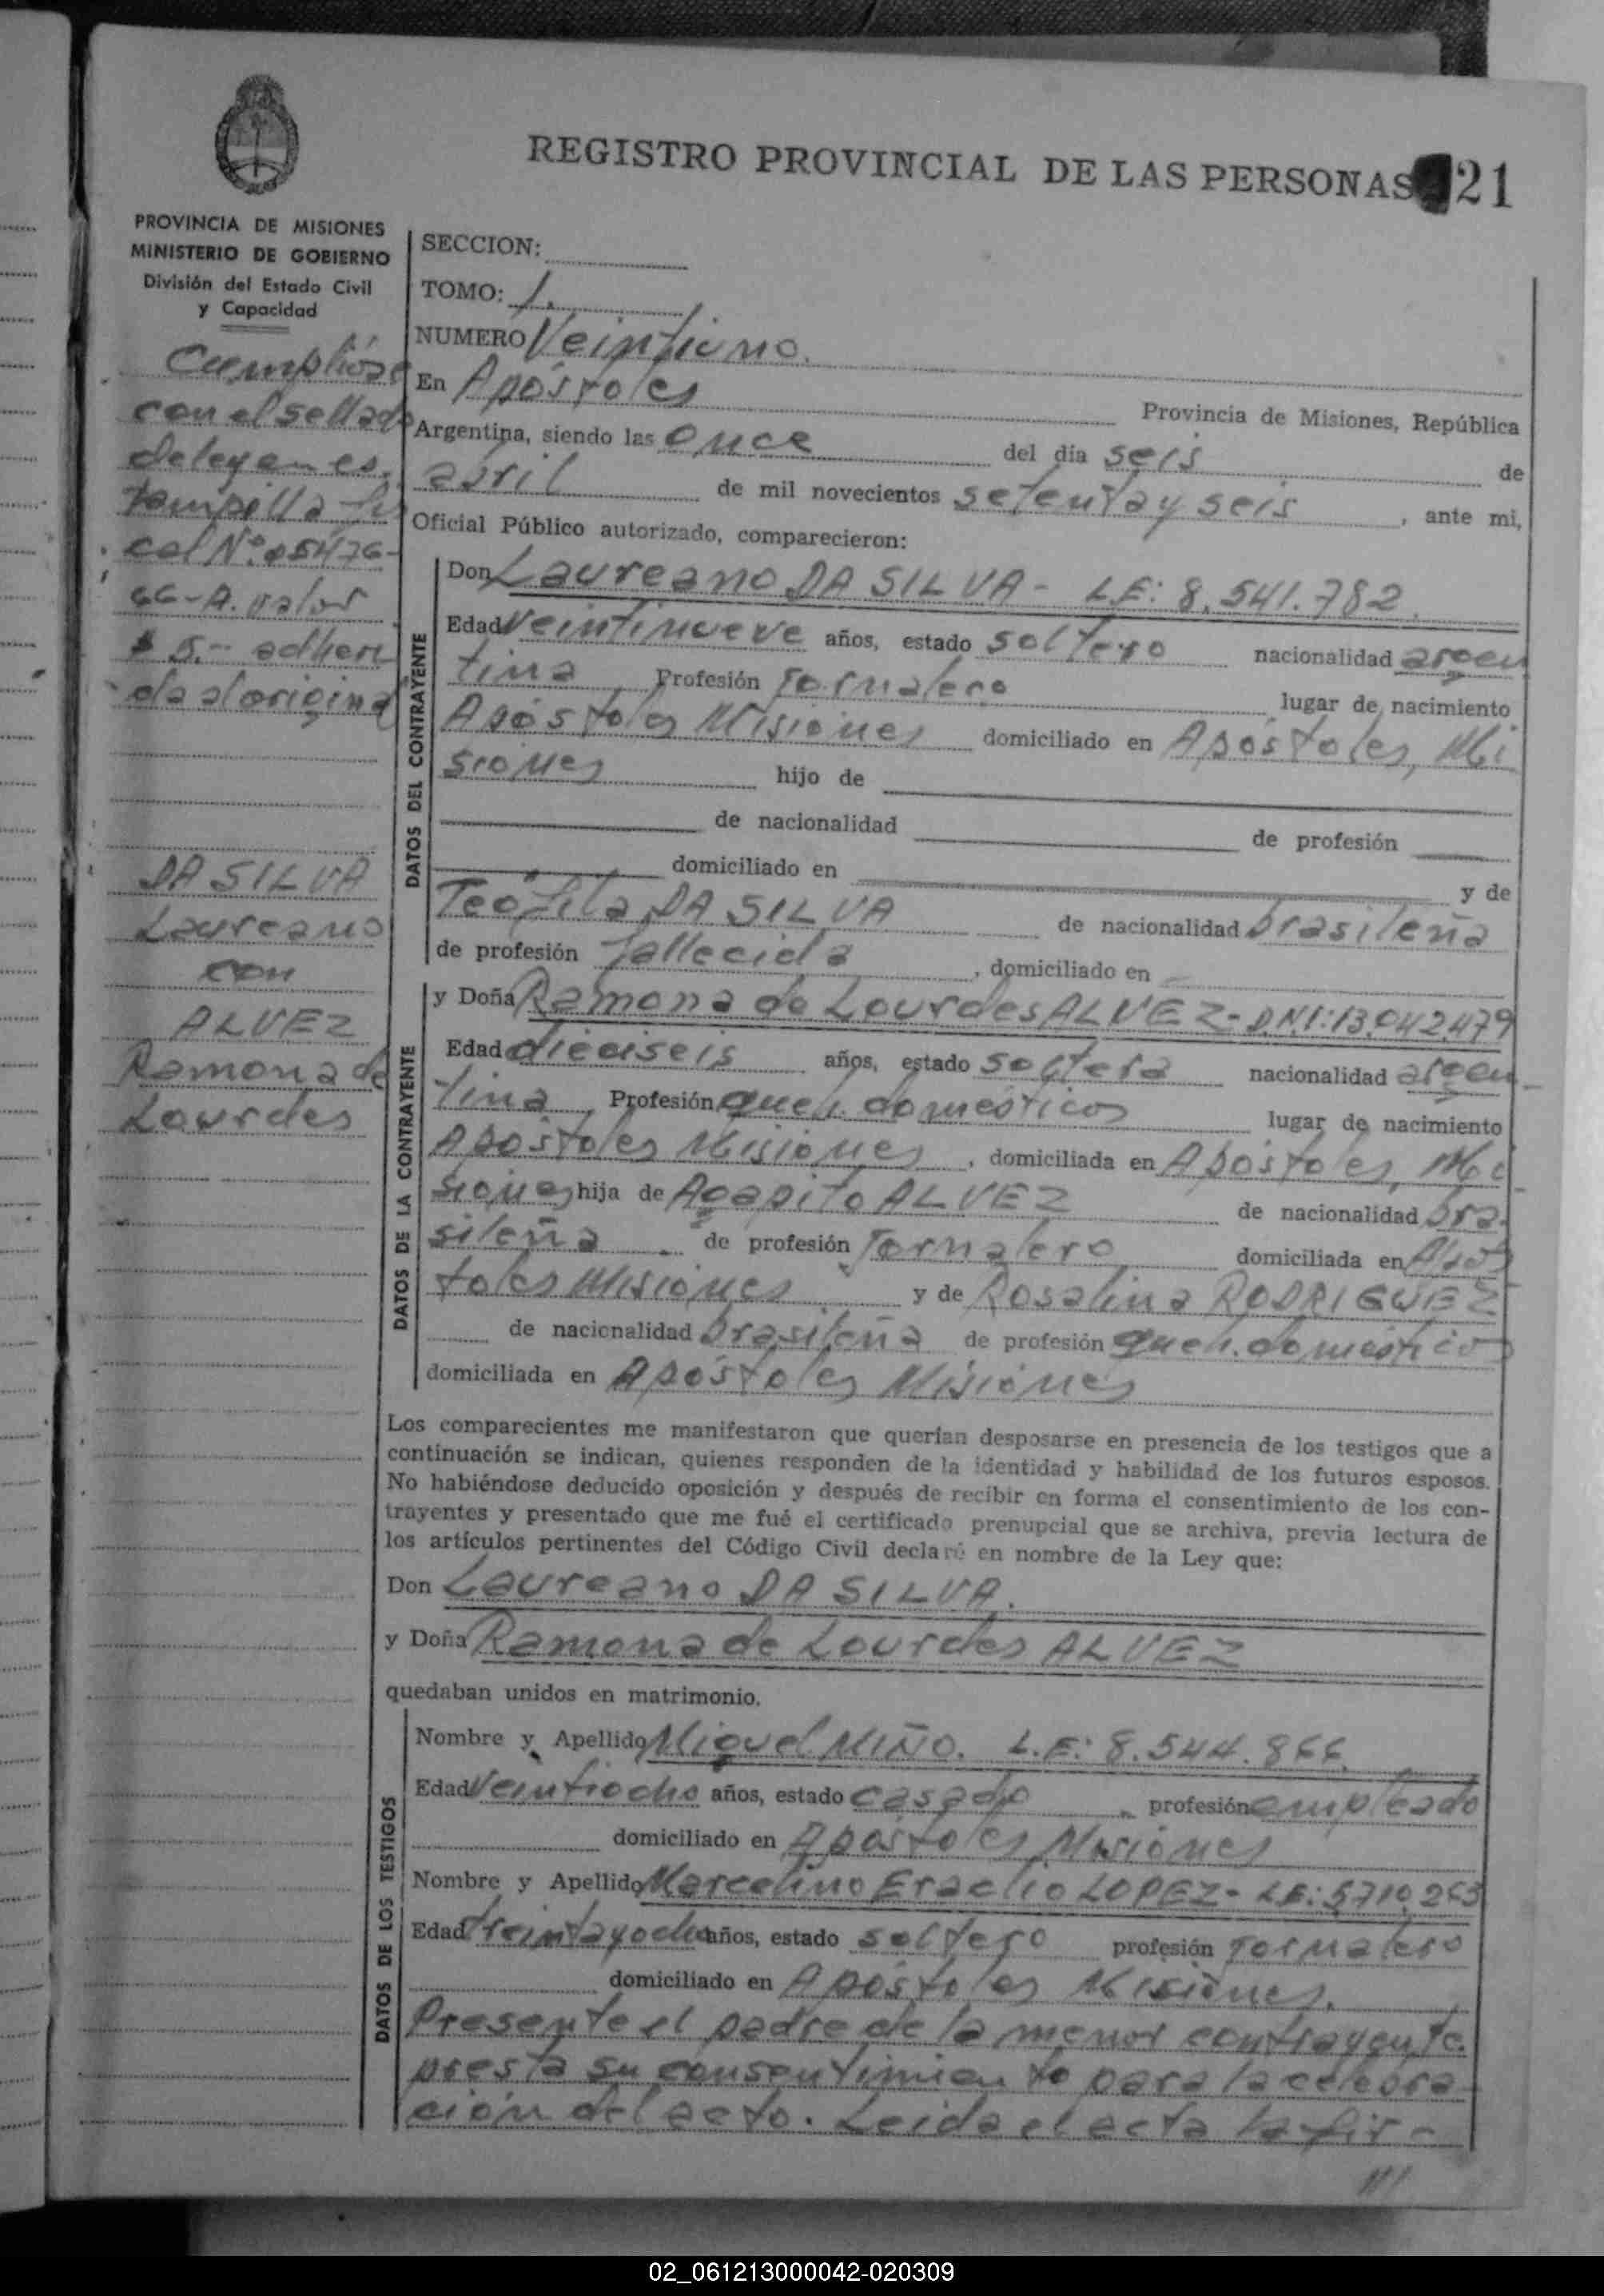 REGISTRO PROVINCIAL DE LAS PERSONAS 21
PROVINCIA DE MISIONES
MINISTERIO DE GOBIERNO
División del Estado Civil
y Capacidad
Cumplióse
con el sellado
de ley en es
tampilla fis
cal Nº 05476-
66-A. valor
$ 5.- adheri
da al original
DA SILVA
Laureano
con
ALVEZ
Ramona de
Lourdes
SECCION:
TOMO: 1.
NUMERO Veintiuno.
En Apóstoles Provincia de Misiones, República
Argentina, siendo las once del día seis de
abril de mil novecientos setenta y seis, ante mi,
Oficial Público autorizado, comparecieron:
DATOS DEL CONTRAYENTE
Don Laureano DA SILVA - LE: 8.541.782.
Edad veintinueve años, estado soltero nacionalidad argen
tina Profesión Jornalero lugar de nacimiento
Apóstoles Misiones domiciliado en Apóstoles, Mi
siones hijo de
de nacionalidad de profesión
domiciliado en y de
Teófila DA SILVA de nacionalidad brasileña
de profesión fallecida, domiciliado en
DATOS DE LA CONTRAYENTE
y Doña Ramona de Lourdes ALVEZ - DNI: 13.042.479
Edad dieciseis años, estado soltera nacionalidad argen-
tina Profesión queh. domésticos lugar de nacimiento
Apóstoles Misiones, domiciliada en Apóstoles, Mi
siones hija de Agapito ALVEZ de nacionalidad bra-
sileña de profesión Jornalero domiciliada en Após
toles Misiones y de Rosalina RODRIGUEZ
de nacionalidad brasileña de profesión queh. domésticos
domiciliada en Apóstoles Misiones
Los comparecientes me manifestaron que querían desposarse en presencia de los testigos que a
continuación se indican, quienes responden de la identidad y habilidad de los futuros esposos.
No habiéndose deducido oposición y después de recibir en forma el consentimiento de los con-
trayentes y presentado que me fué el certificado prenupcial que se archiva, previa lectura de
los artículos pertinentes del Código Civil declaré en nombre de la Ley que:
Don Laureano DA SILVA.
y Doña Ramona de Lourdes ALVEZ
quedaban unidos en matrimonio.
DATOS DE LOS TESTIGOS
Nombre y Apellido Miguel MIÑO. L.E: 8.544.866.
Edad Veintiocho años, estado casado profesión empleado
domiciliado en Apóstoles Misiones
Nombre y Apellido Marcelino Eraclio LOPEZ - LE: 5.710.263
Edad treinta y ocho años, estado soltero profesión Jornalero
domiciliado en Apóstoles Misiones.
Presente el padre de la menor contrayente.
presta su consentimiento para la celebra-
ción del acto. Leida el acta la fir-
///
02_061213000042-020309